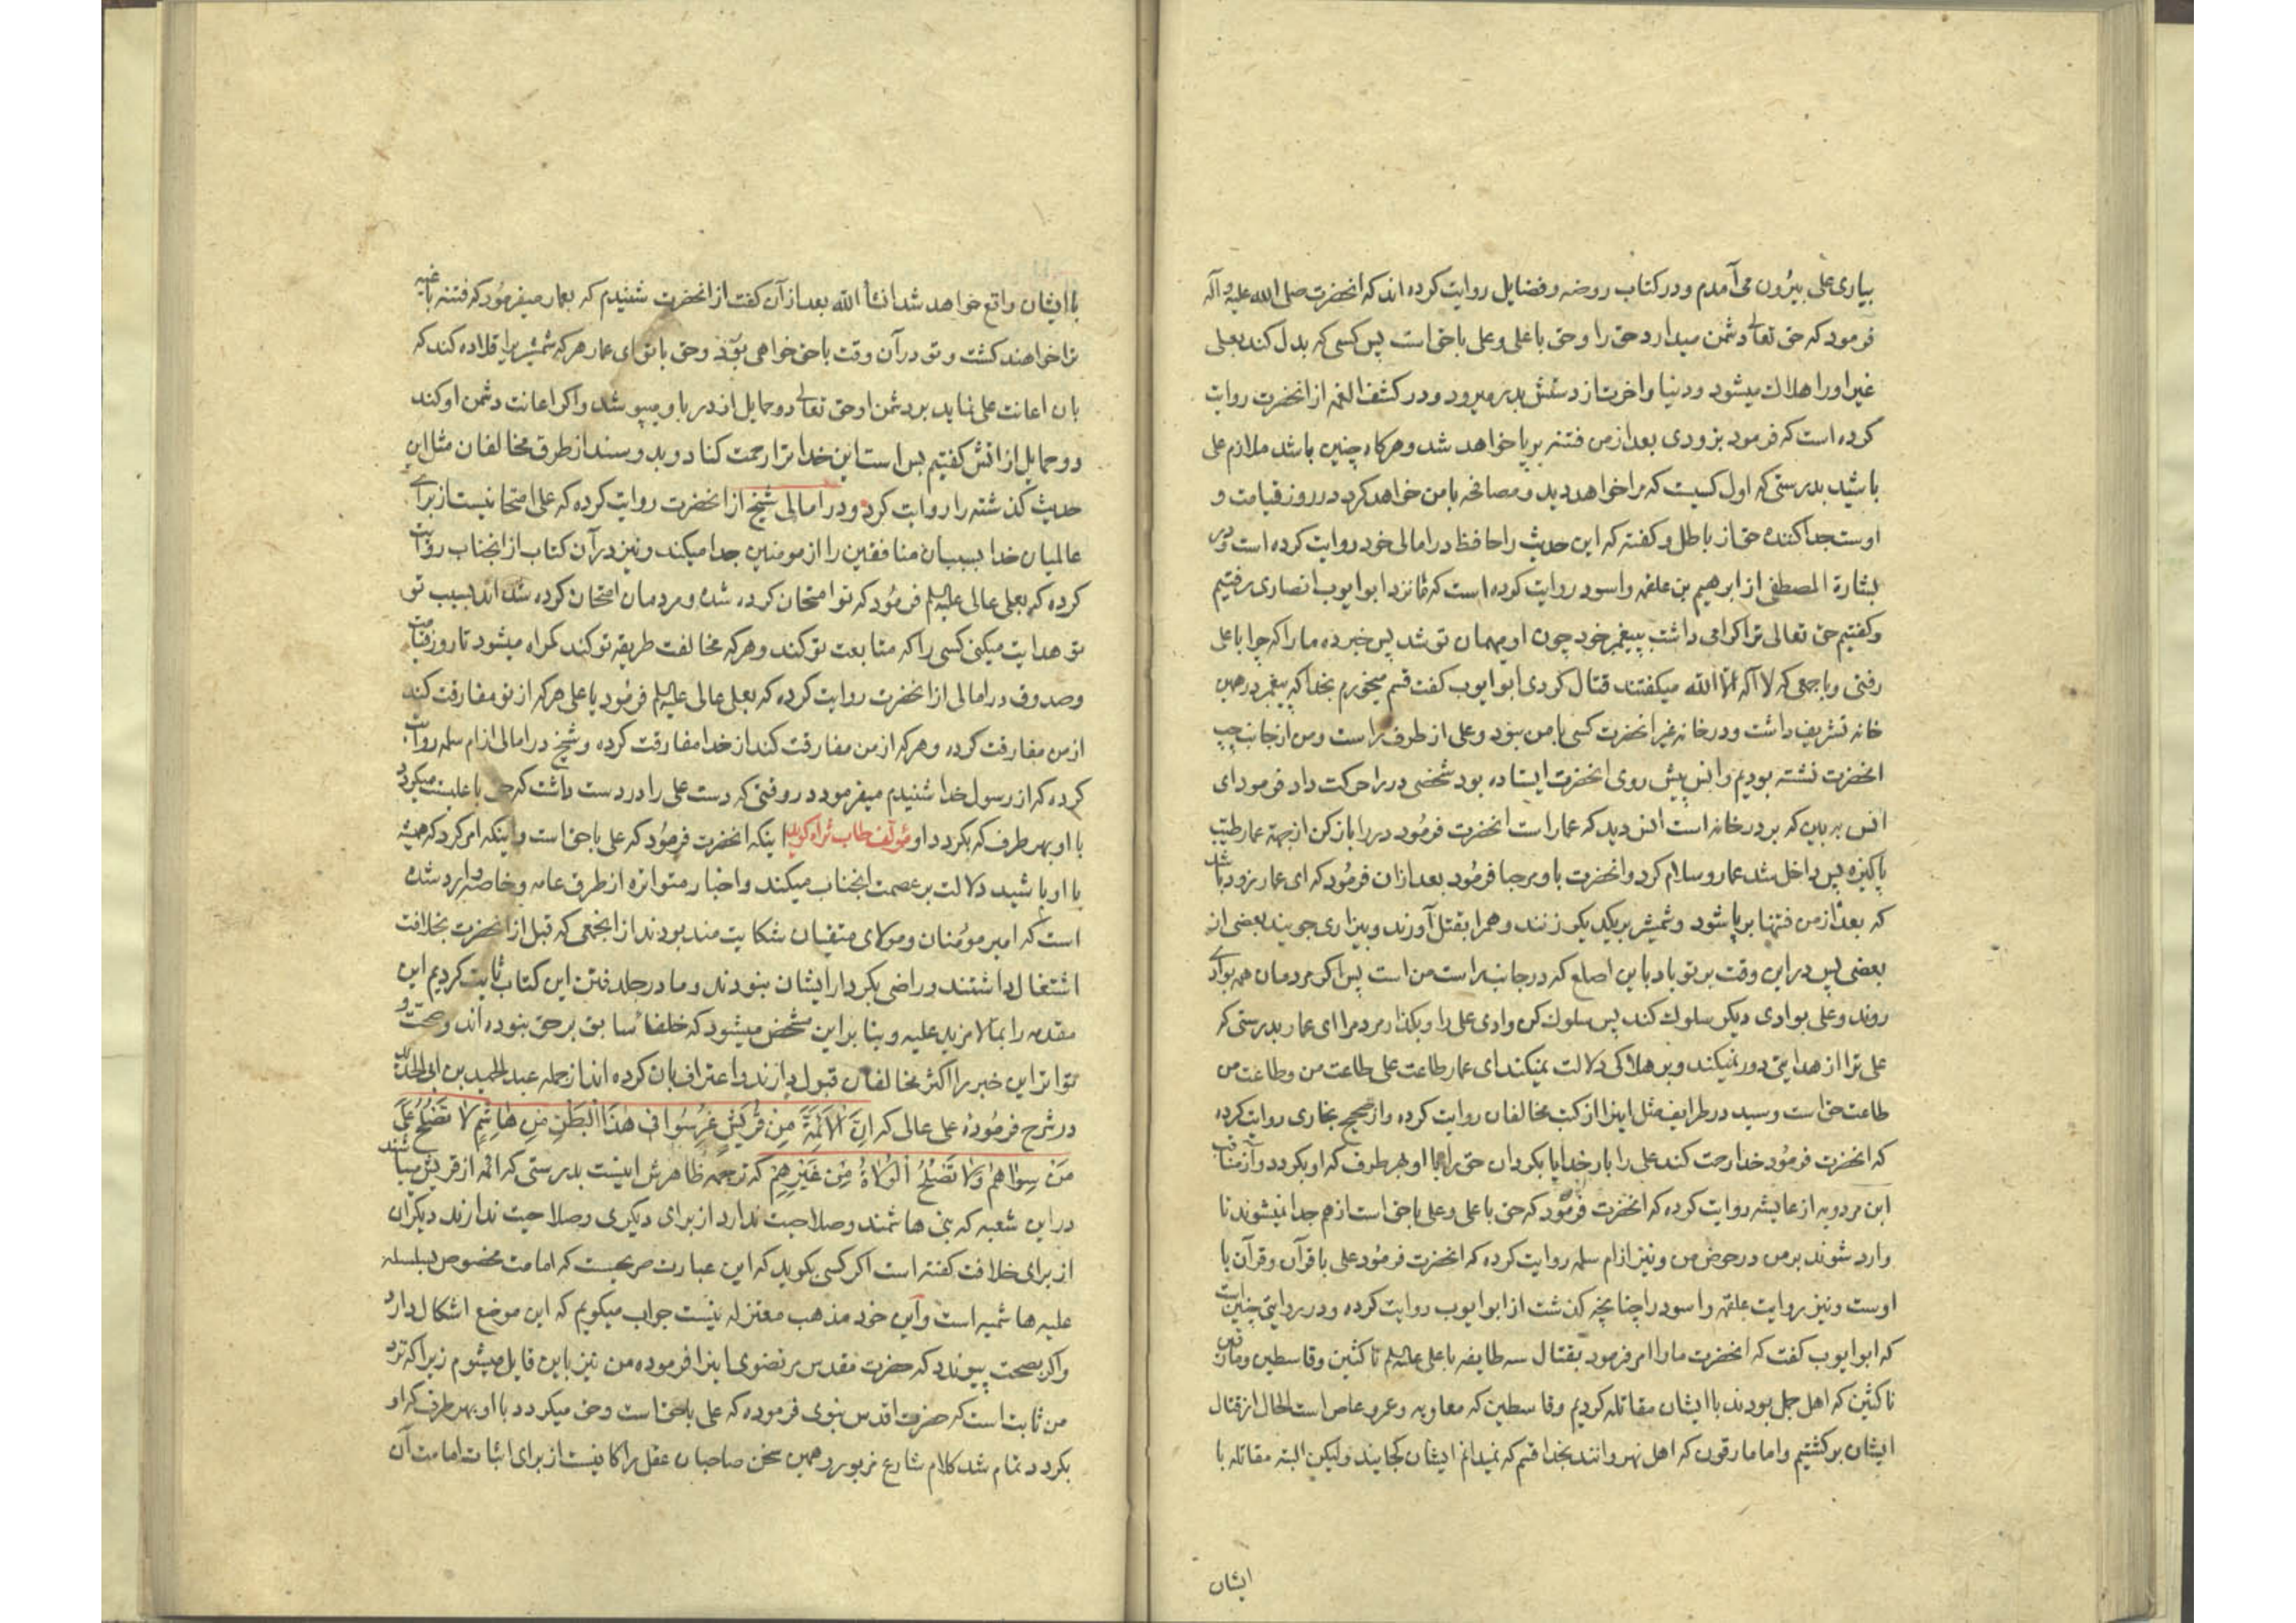 بیاری علی بیرون می‌آمدم و در کتاب روضه و فضایل روایت کرده اند که انحضرت صلی الله علیه و آله
فرمود که حق تعالی دشمن میدارد حق را و حق با علی و علی با حق است پس کسی که بدل کند بعلی
غیر او را هلاک میشود و دنیا و اخرت از دستش بدر میرود و در کشف الغمه از انحضرت روایت
کرده است که فرمود بزودی بعد از من فتنه بر پا خواهد شد و هرکاه چنین باشد ملازم علی
باشید بدرستی که اول کسیت که مرا خواهد دید و مصافحه با من خواهد کرد در روز قیامت و
اوست جدا کننده حق از باطل و کفته که این حدیث را حافظ در امالی خود روایت کرده است و در
بشارة المصطفی از ابرهیم بن علقمه و اسود روایت کرده است که ما نزد ابو ایوب انصاری رفتیم
و کفتیم حق تعالی ترا کرامی داشت بپیغمبر خود چون او مهمان تو شد پس خبر ده ما را که چرا با علی
رفتی و با جمعی که لا آله الا الله میکفتند قتال کردی ابو ایوب کفت قسم میخورم بخدا که پیغمبر در همین
خانه تشریف داشت و در خانه غیر انحضرت کسی با من نبود و علی از طرف راست و من از جانب چپ
انحضرت نشته بودیم و انس پیش روی انحضرت ایستاده بود شخصی در را حرکت داد فرمود ای
انس به بین که بر در خانه است انس دید که عمار است انحضرت فرمود در را باز کن از جهة عمار طیب
پاکیزه پس داخل شد عمار و سلام کرد و انحضرت باو مرحبا فرمود بعد از ان فرمود که ای عمار زود باشد
که بعد از من فتنها بر پا شود و شمشیر بر یکدیکر زنند و همرا بقتل آورند و بیزاری جویند بعضی از
بعضی پس در این وقت بر تو باد باین اصلع که در جانب راست من است پس اکر مردمان همه بوادی
روند و علی بوادی دیکر سلوک کند پس سلوک کن وادی علی را و بکذار مردم را ای عمار بدرستی که
علی ترا از هدایتی دور نمیکند و بر هلاکی دلالت نمیکند ای عمار طاعت علی طاعت من و طاعت من
طاعت خداست و سید در طرایف مثل اینرا از کتب مخالفان روایت کرده و از صحیح بخاری روایت کرده
که انحضرت فرمود خدا رحمت کند علی را بار خدایا بکردان حق را با او بهر طرف که او بکردد و از مناقب
ابن مردویه از عایشه روایت کرده که انحضرت فرمود که حق با علی و علی با حق است از هم جدا نمیشوند تا
وارد شوند بر من در حوض من و نیز از ام سلمه روایت کرده که انحضرت فرمود علی با قرآن و قرآن با
اوست و نیز روایت علقمه و اسود را چنانچه کذشت از ابو ایوب روایت کرده و در روایتی چنین است
که ابو ایوب کفت که انحضرت ما را امر فرمود بقتال سه طایفه با علی علیه السلم ناکثین و قاسطین و مارقین
ناکثین که اهل جمل بودند با ایشان مقاتله کردیم و قاسطین که معاویه و عمرو عاص است الحال از قتال
ایشان برکشتیم و اما مارقون که اهل نهروانند بخدا قسم که نمیدانم ایشان کجایند ولیکن البته مقاتله با
ایشان
با ایشان واقع خواهد شد انشأ الله بعد از آن کفت از انحضرت شنیدم که بعمار میفرمود که فتنه باغیه
ترا خواهند کشت و تو در آن وقت با حق خواهی بود و حق با تو ای عمار هر که شمشیر را قلاده کند که
بان اعانت علی نماید بر دشمن او حق تعالی دو حمایل از در باو میپوشد و اکر اعانت دشمن او کند
دو حمایل از اتش کفتیم بس است این خدا ترا رحمت کناد و بدو سند از طرق مخالفان مثل این
حدیث کذشته را روایت کرد و در امالی شیخ از انحضرت روایت کرده که علی امتحانیست از برای
عالمیان خدا بسبب ان منافقین را از مومنین جدا میکند و نیز در آن کتاب از انجناب روایت
کرده که بعلی عالی علیه السلم فرمود که تو امتحان کرده شده و مردمان امتحان کرده شده اند بسبب تو
تو هدایت میکنی کسی را که متابعت تو کند و هر که مخالفت طریقه تو کند کمراه میشود تا روز قیامت
و صدوق در امالی از انحضرت روایت کرده که بعلی عالی علیه السلم فرمود یا علی هر که از تو مفارقت کند
از من مفارقت کرده و هر که از من مفارقت کند از خدا مفارقت کرده و شیخ در امالی از ام سلمه روایت
کرده که از رسول خدا شنیدم میفرمود در وقتی که دست علی را در دست داشت که حق با علیست میکردد
با او بهر طرف که بکردد او مؤلف طاب ثراه کوید اینکه انحضرت فرمود که علی با حق است و اینکه امر کرد که همیشه
با او باشید دلالت بر عصمت انجناب میکند و اخبار متواتره از طرق عامه و خاصه وارد شده
است که امیر مؤمنان و مولای متقیان شکایت مند بودند از انجمعی که قبل از انحضرت بخلافت
اشتغال داشتند و راضی بکردار ایشان نبودند و ما در جلد فتن این کتاب ثابت کردیم این
مقدمه را بما لا مزید علیه و بنا بر این مشخص میشود که خلفا سابق بر حق نبوده اند و صحت و
تواتر این خبر را اکثر مخالفان قبول دارند و اعتراف بان کرده اند از جمله عبد الحمید بن ابی الحدید
در شرح فرموده علی عالی که اِنَّ الاَئِمَّةَ مِنْ قُرَیْشٍ غُرِسُوا فی هٰذَا الْبَطْنِ مِنْ هاشِمٍ لا تَصْلُحُ عَلی
مَنْ سِوٰاهُمْ وَلا تَصْلُحُ الْوُلاةُ مِنْ غَیْرِهِمْ که ترجمه ظاهرش اینست بدرستی که ائمه از قریش میباشند
در این شعبه که بنی هاشمند و صلاحیت ندارد از برای دیکری و صلاحیت ندارند دیکران
از برای خلافت کفته است اکر کسی بکوید که این عبارت صریحست که امامت مخصوص بسلسله
علیه هاشمیه است و این خود مذهب معتزله نیست جواب میکویم که این موضع اشکال دارد
و اکر بصحت پیوندد که حضرت مقدس مرتضوی اینرا فرموده من نیز باین قایل میشوم زیرا که نزد
من ثابت است که حضرت اقدس نبوی فرموده که علی با حق است و حق میکردد با او بهر طرف که او
بکردد تمام شد کلام شارع مزبور و همین سخن صاحبان عقل را کافیست از برای اثبات امامت آن